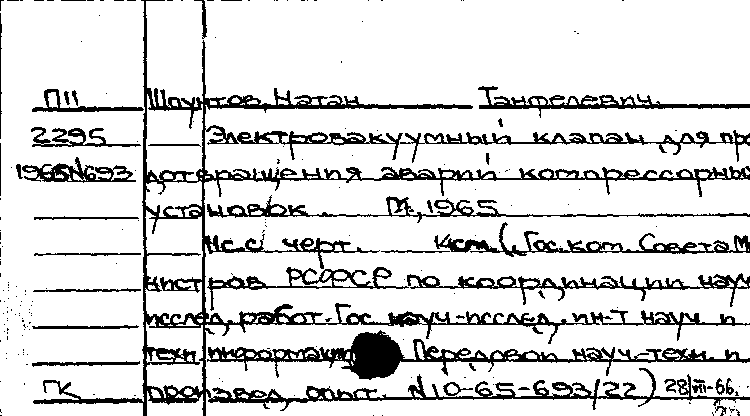 П11 Шпунтов, Натан Танфелевич.
2295 Электровакуумный клапан для пре
1965N693 дотвращения аварий компрессорных
установок. М., 1965
4с.с черт. 4см. (Гос. ком. Совета Ми
нистров РСФСР по координации науч
исслед. работ. Гос науч-исслед. ин-т науч. и
техн. информации Передовой науч.-техн. и
ГК производ. опыт. N10-65-693/22) 28/III-66.